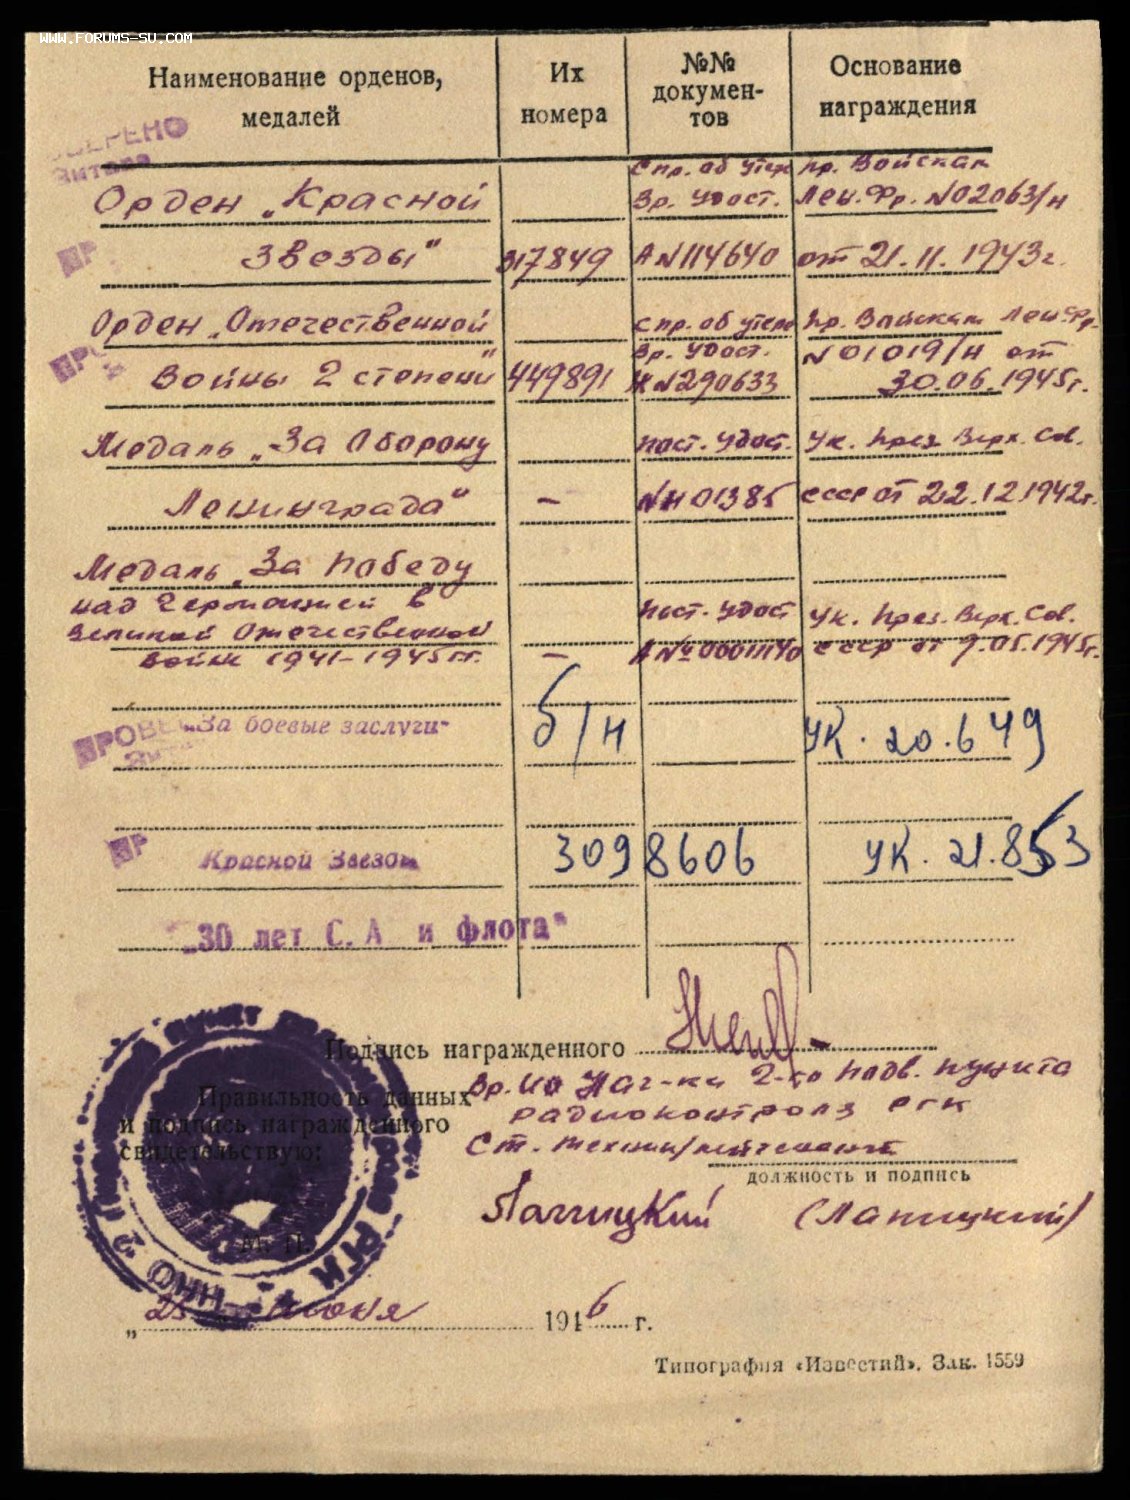 www.forums-su.com
Наименование орденов, медалей
Их номера
№№ документов
Основание награждения
Спр. об утер Пр. Войскам
Орден „Красной Вр. Удост. Лен. Фр. №02063/н
Звезды" 317849 А №114640 от 21.11.1943г.
Орден „Отечественной Спр. об утере Пр. Войскам Лен. Фр.
Вр. Удост. №01019/н от
Войны 2 степени" 449891 №290633 30.06.1945г.
Медаль „За Оборону Пост. Удост. Ук. През. Верх. Сов.
Ленинграда" – №Н 01385 СССР от 22.12.1942г.
Медаль „За Победу
над Германией в Пост. Удост Ук. През. Верх. Сов.
Великой Отечественной
войне 1941–1945гг. – А № СССР от 9.05.1945г.
ПРОВЕ „За боевые заслуги" б/н УК. 20.6 49
ПР Красной Звезды 3098606 УК. 21.853
„30 лет С. А и флота"
Подпись награжденного
Вр. ио Нач-ка 2-го Подв. пункта
Правильность данных радиоконтроля РГК
и подпись награжденного
свидетельствую: Ст. техник/лейтенант
должность и подпись
Лапицкий (Лапицкий)
М. П.
„25 Июня 1946 г.
Типография «Известий». Зак. 1559